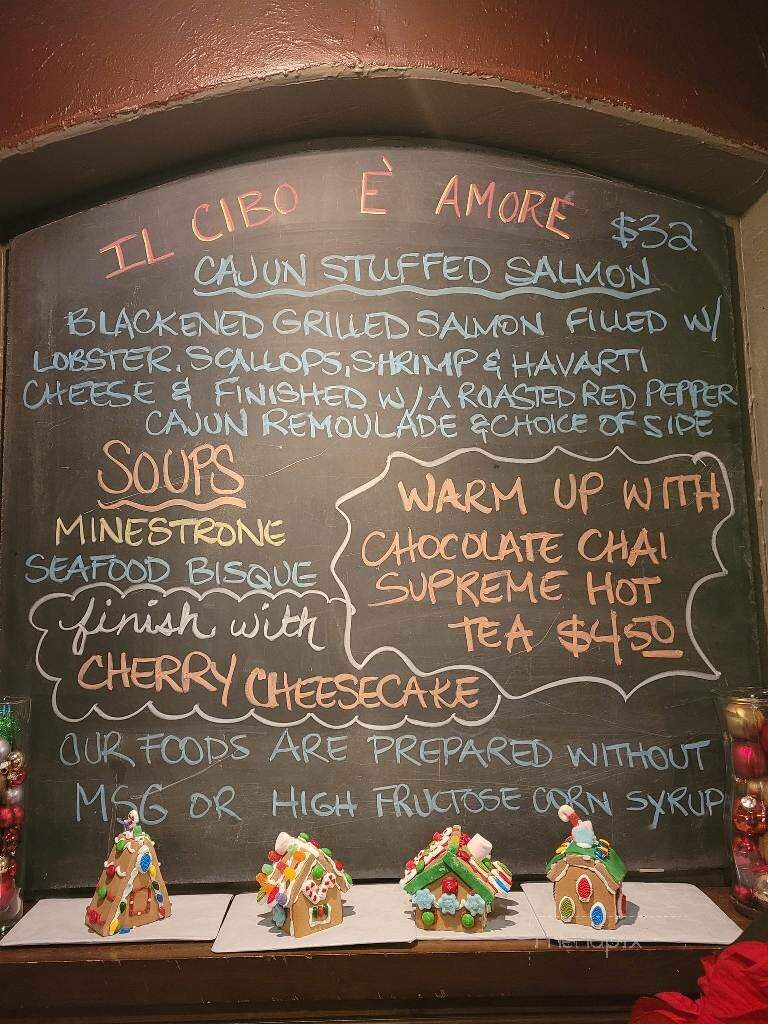 IL CIBO È AMORÉ
$32
CAJUN STUFFED SALMON
BLACKENED GRILLED SALMON FILLED W/
LOBSTER, SCALLOPS, SHRIMP & HAVARTI
CHEESE & FINISHED W/ A ROASTED RED PEPPER
CAJUN REMOULADE & CHOICE OF SIDE
SOUPS
MINESTRONE
SEAFOOD BISQUE
WARM UP WITH
CHOCOLATE CHAI
SUPREME HOT
TEA $4 50
finish with
CHERRY CHEESECAKE
OUR FOODS ARE PREPARED WITHOUT
MSG OR HIGH FRUCTOSE CORN SYRUP
menupix